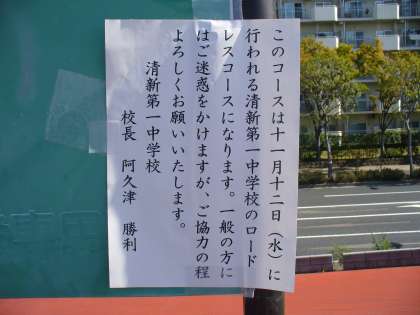 このコースは十一月十二日（水）に
行われる清新第一中学校のロード
レスコースになります。一般の方に
はご迷惑をかけますが、ご協力の程
よろしくお願いいたします。
清新第一中学校
校長　阿久津　勝利